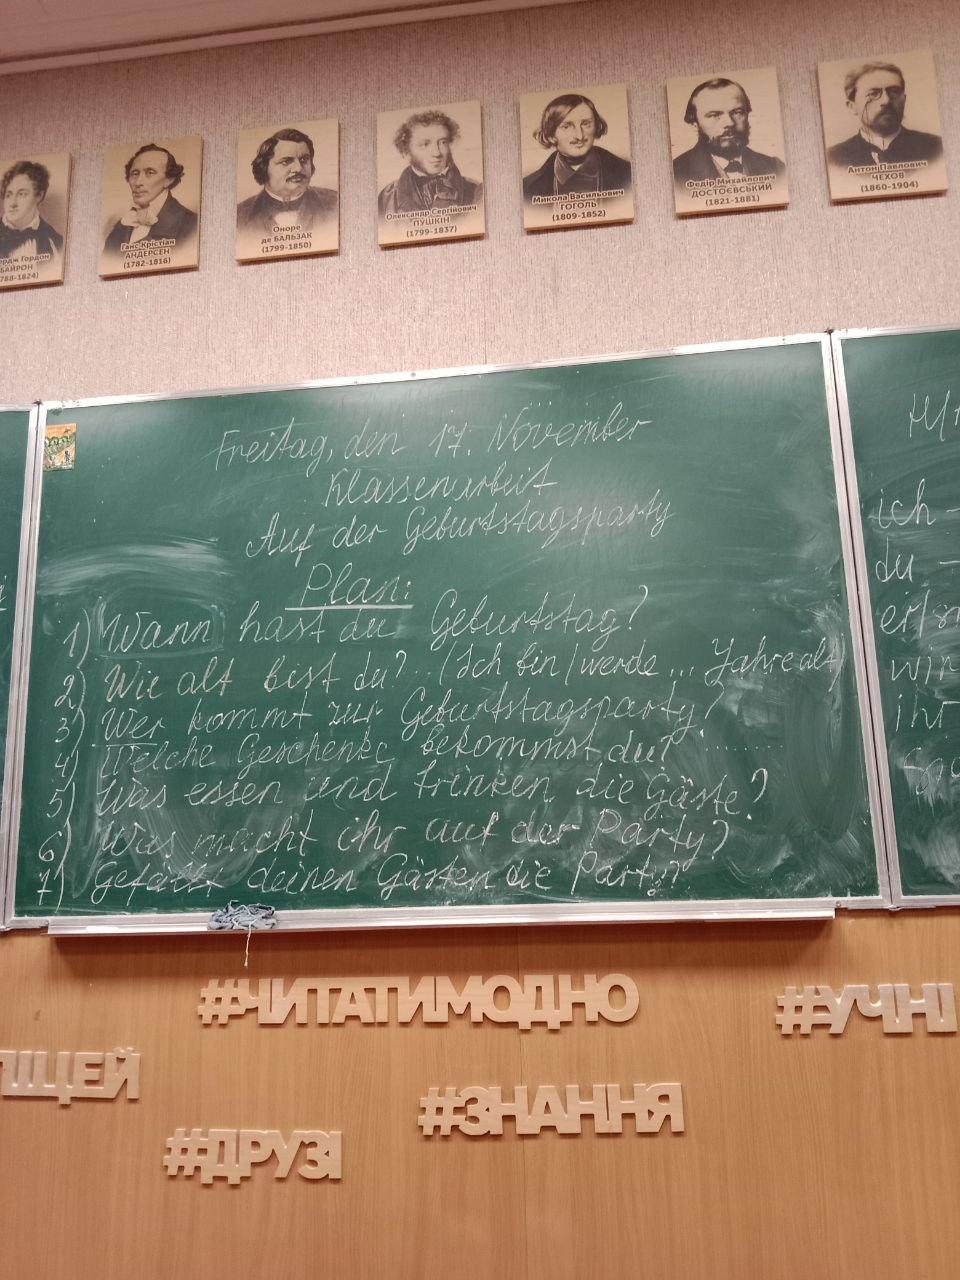 Антон Павлович
ЧЕХОВ
(1860-1904)
Федір Михайлович
ДОСТОЄВСЬКИЙ
(1821-1881)
Микола Васильович
ГОГОЛЬ
(1809-1852)
Олександр Сергійович
ПУШКІН
(1799-1837)
Оноре
де БАЛЬЗАК
(1799-1850)
Ганс Крістіан
АНДЕРСЕН
(1782-1816)
рдж Гордон
БАЙРОН
788-1824)
Freitag, den 17. November
Klassenarbeit
Auf der Geburtstagsparty
Plan:
1) Wann hast du Geburtstag?
2) Wie alt bist du? (Ich bin/werde ... Jahre alt)
3) Wer kommt zur Geburtstagsparty?
4) Welche Geschenke bekommst du? ........
5) Was essen und trinken die Gäste?
6) Was macht ihr auf der Party?
7) Gefällt deinen Gästen die Party?
ich -
du -
er/s
wir
ihr
#ЧИТАТИМОДНО
#УЧНІ
ЛІЦЕЙ
#ЗНАННЯ
#ДРУЗІ